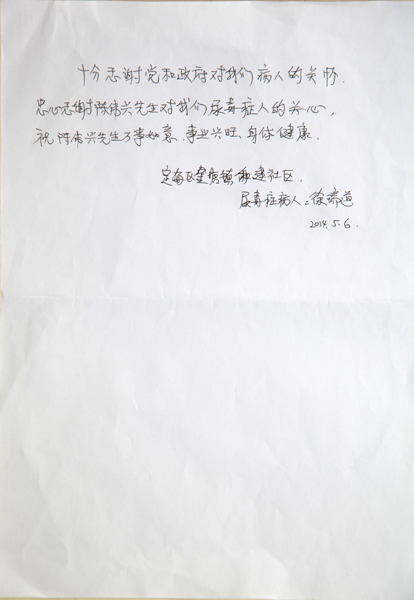 十分感谢党和政府对我们病人的关怀.
忠心感谢陈伟兴先生对我们尿毒症人的关心,
祝陈伟兴先生万事如意、事业兴旺、身体健康.
定海区金塘镇 社区.
尿毒症病人:徐
2014.5.6